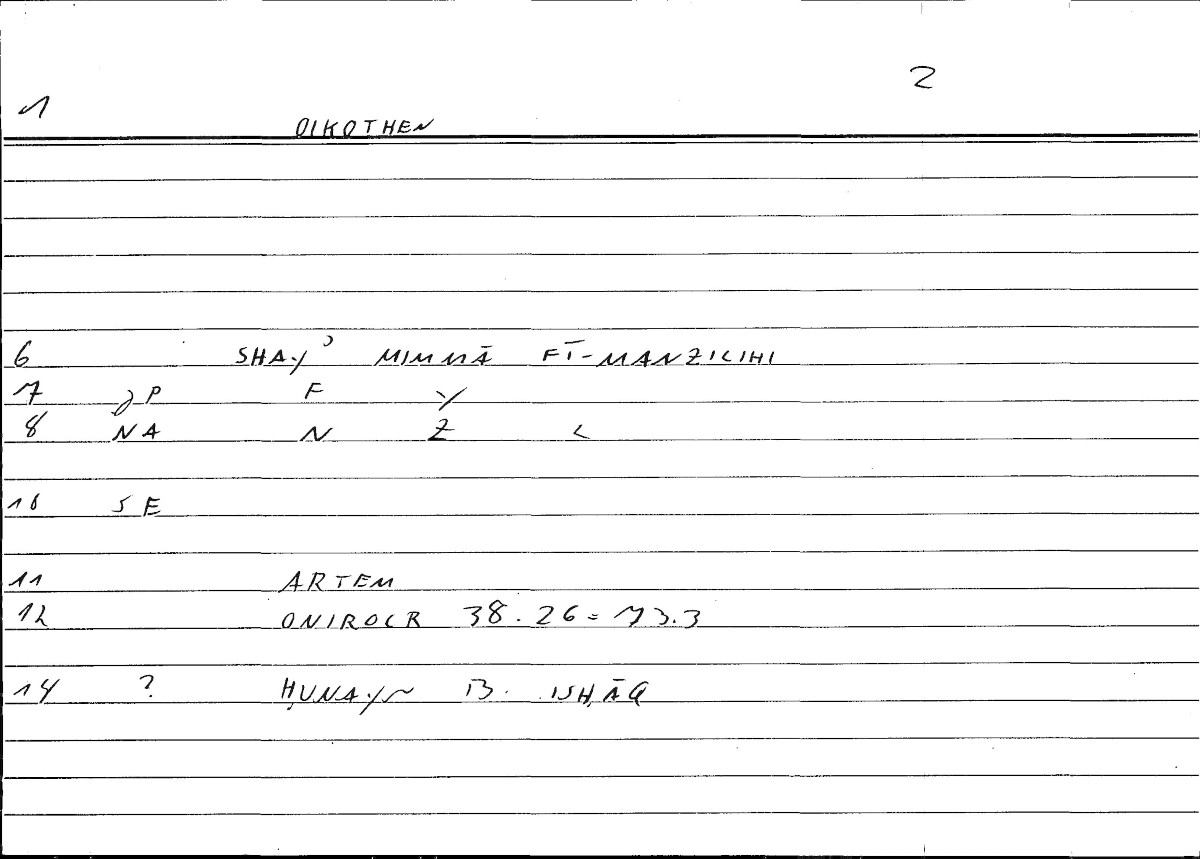 2
1 OIKOTHEN
6 SHAYʾ MIMMĀ FĪ-MANZILIHI
7 JP F Y
8 NA N Z L
10 SE
11 ARTEM
12 ONIROCR 38.26=73.3
14 ? ḤUNAYN B. ISḤĀQ